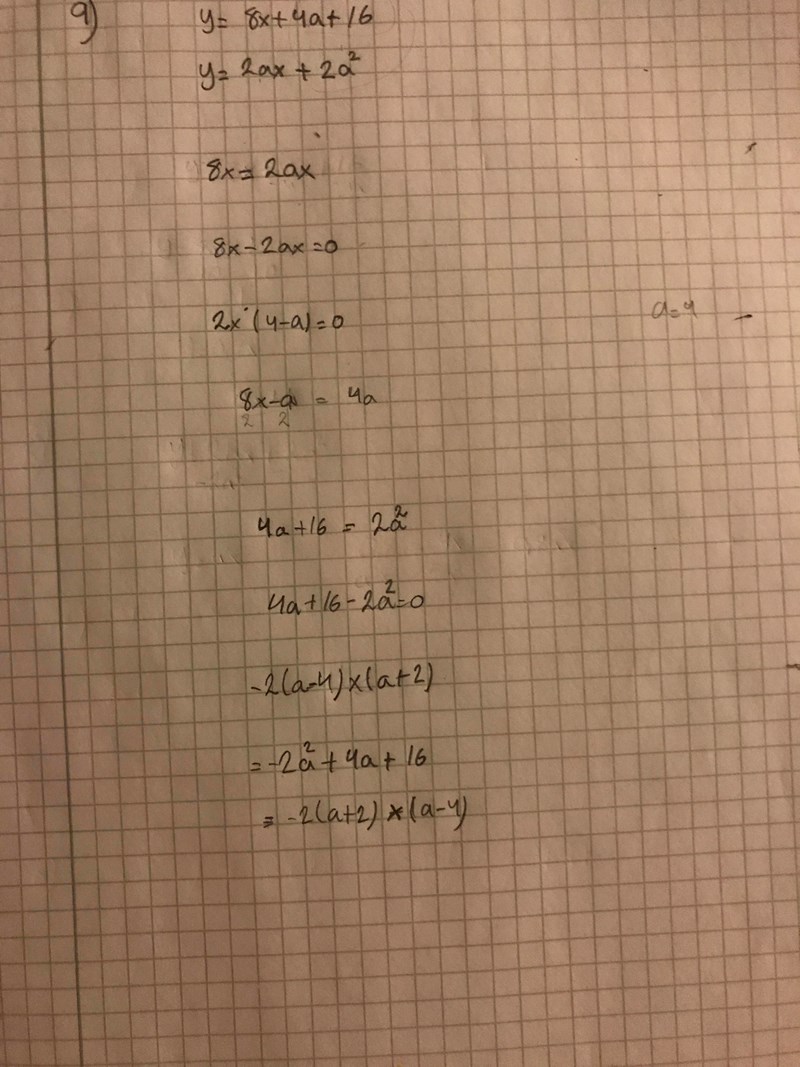 9) y= 8x+4a+16
y= 2ax + 2a²
8x= 2ax
8x-2ax=0
2x·(4-a)=0 a=4
8x-a = 4a
2 2
4a+16 = 2a²
4a+16-2a²=0
-2(a-4)×(a+2)
= -2a²+4a+16
= -2(a+2)×(a-4)